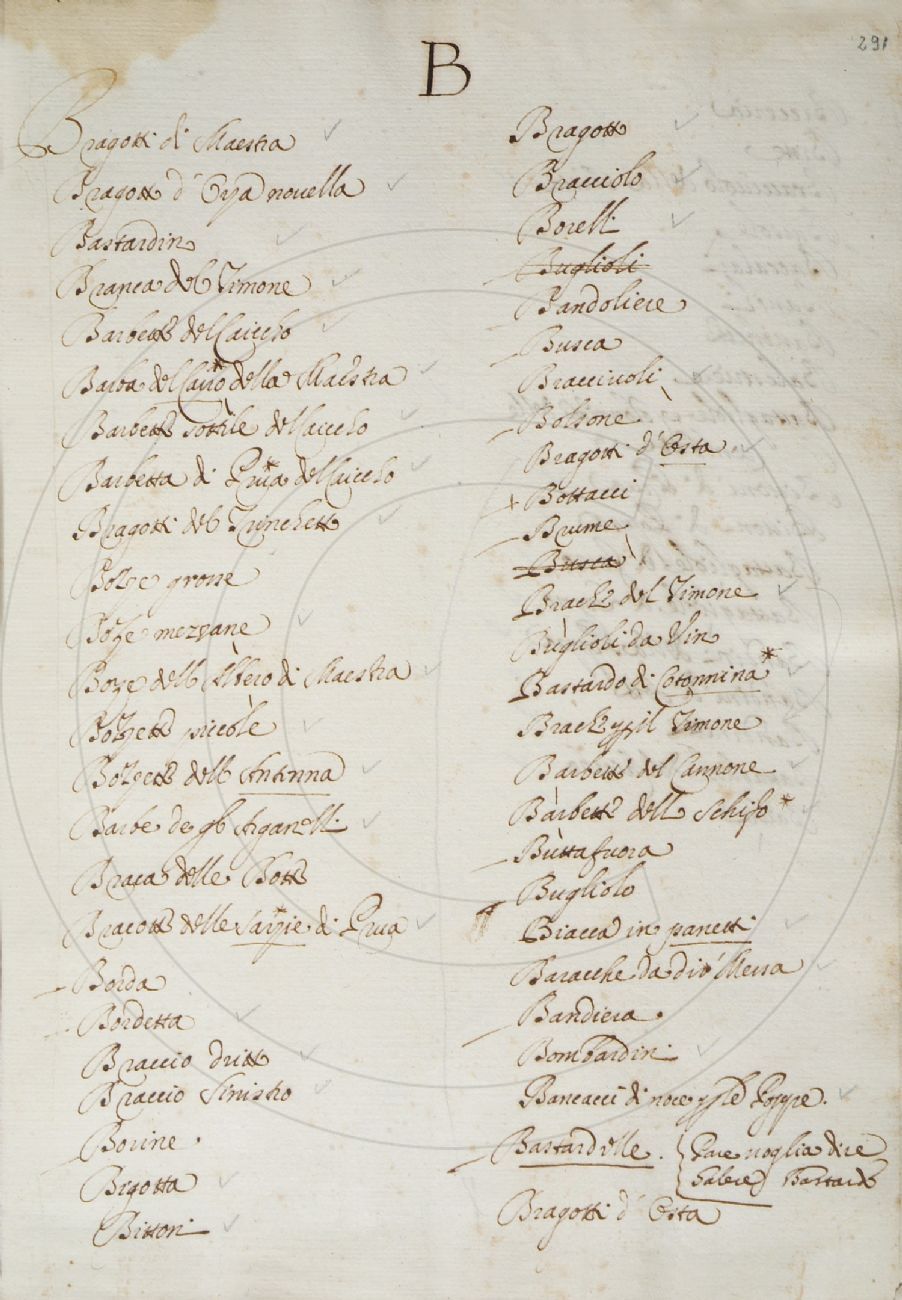 291
B
Bragotti di Maestra
Bragotti d'Orza novella
Bastardin
Branca del Timone
Barbetta del Caiccho
Barba del Cairo della Maestra
Barbetta sottile del Caiccho
Barbetta di Prua del Caiccho
Bragotti del Trinchetto
Bolze grosse
Bolze mezzane
Boze dell'Albero di Maestra
Bolzette piccole
Bolzette dell'Antenna
Barbe de gl'Arganelli
Braca delle Botti
Bracotti delle Sarzie di Prua
Borda
Bordetta
Braccio dritto
Braccio sinistro
Borine
Bigotta
Bittoni
Bragotto
Bracciolo
Borelli
Buglioli
Bandoliere
Busca
Bracciuoli
Bolsone
Bragotti d'Osta
Bottacci
Brume
Busca
Brache del Timone
Buglioli da Vin
Bastardo di Cotonnina
Brache p il Timone
Barbetta del Cannone
Barbetta dello Schifo
Buttafuora
Bugliolo
Biacca in panetti
Baracche da dir Messa
Bandiera
Bombardini
Bancacci di noce p le Poppe.
Bastardelle. Pare voglia dire
Sabere Bastarde
Bragotti d'Osta